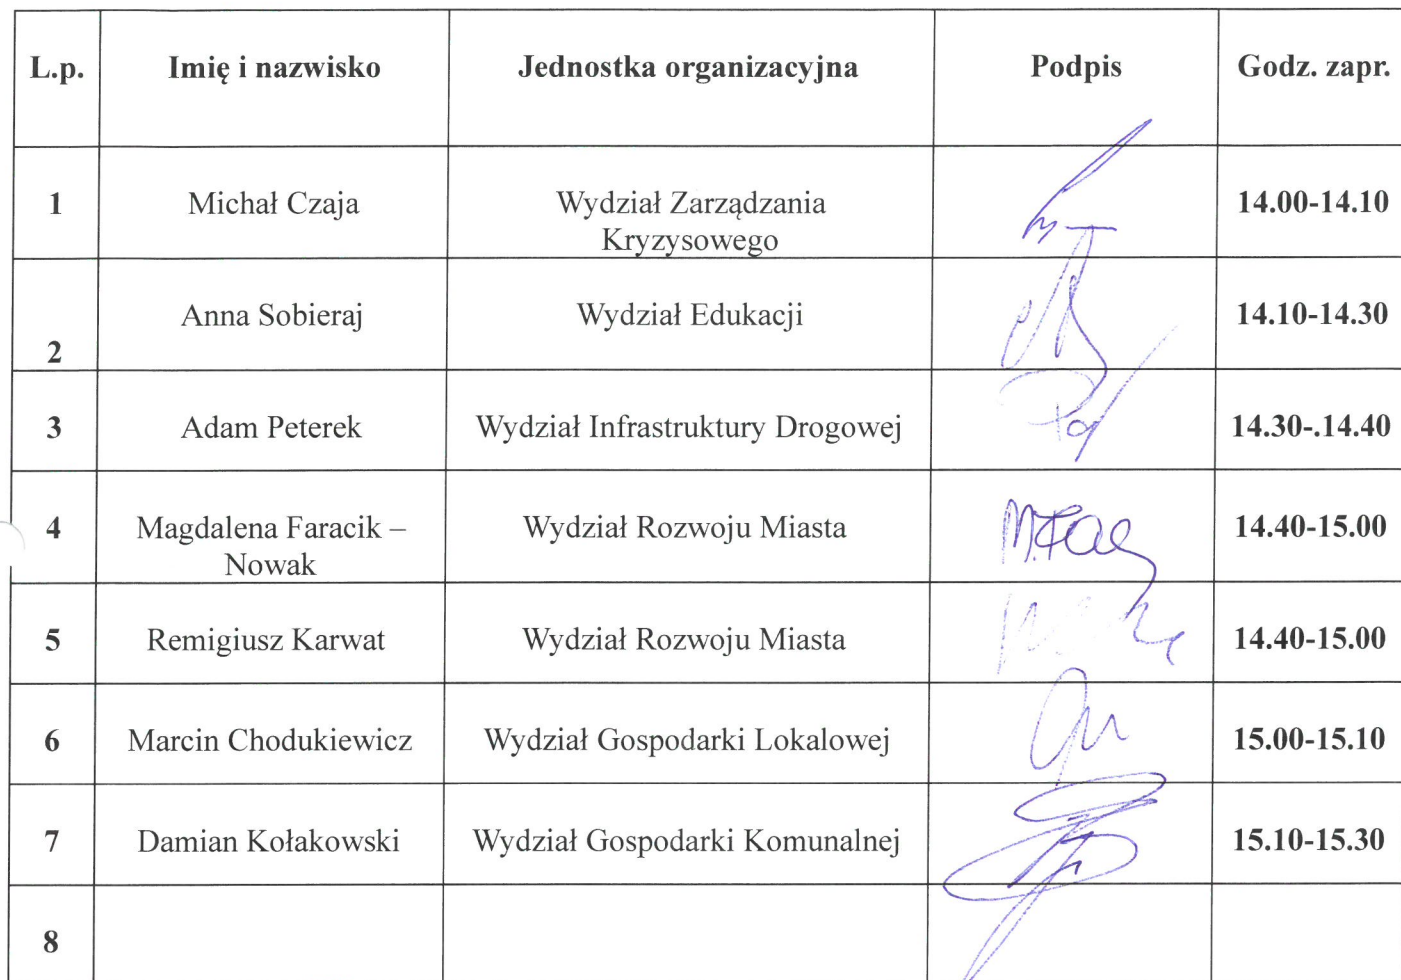 L.p. Imię i nazwisko Jednostka organizacyjna Podpis Godz. zapr.
1 Michał Czaja Wydział Zarządzania 14.00-14.10
Kryzysowego
Anna Sobieraj Wydział Edukacji 14.10-14.30
2
3 Adam Peterek Wydział Infrastruktury Drogowej 14.30-.14.40
4 Magdalena Faracik – Wydział Rozwoju Miasta 14.40-15.00
Nowak
5 Remigiusz Karwat Wydział Rozwoju Miasta 14.40-15.00
6 Marcin Chodukiewicz Wydział Gospodarki Lokalowej 15.00-15.10
7 Damian Kołakowski Wydział Gospodarki Komunalnej 15.10-15.30
8